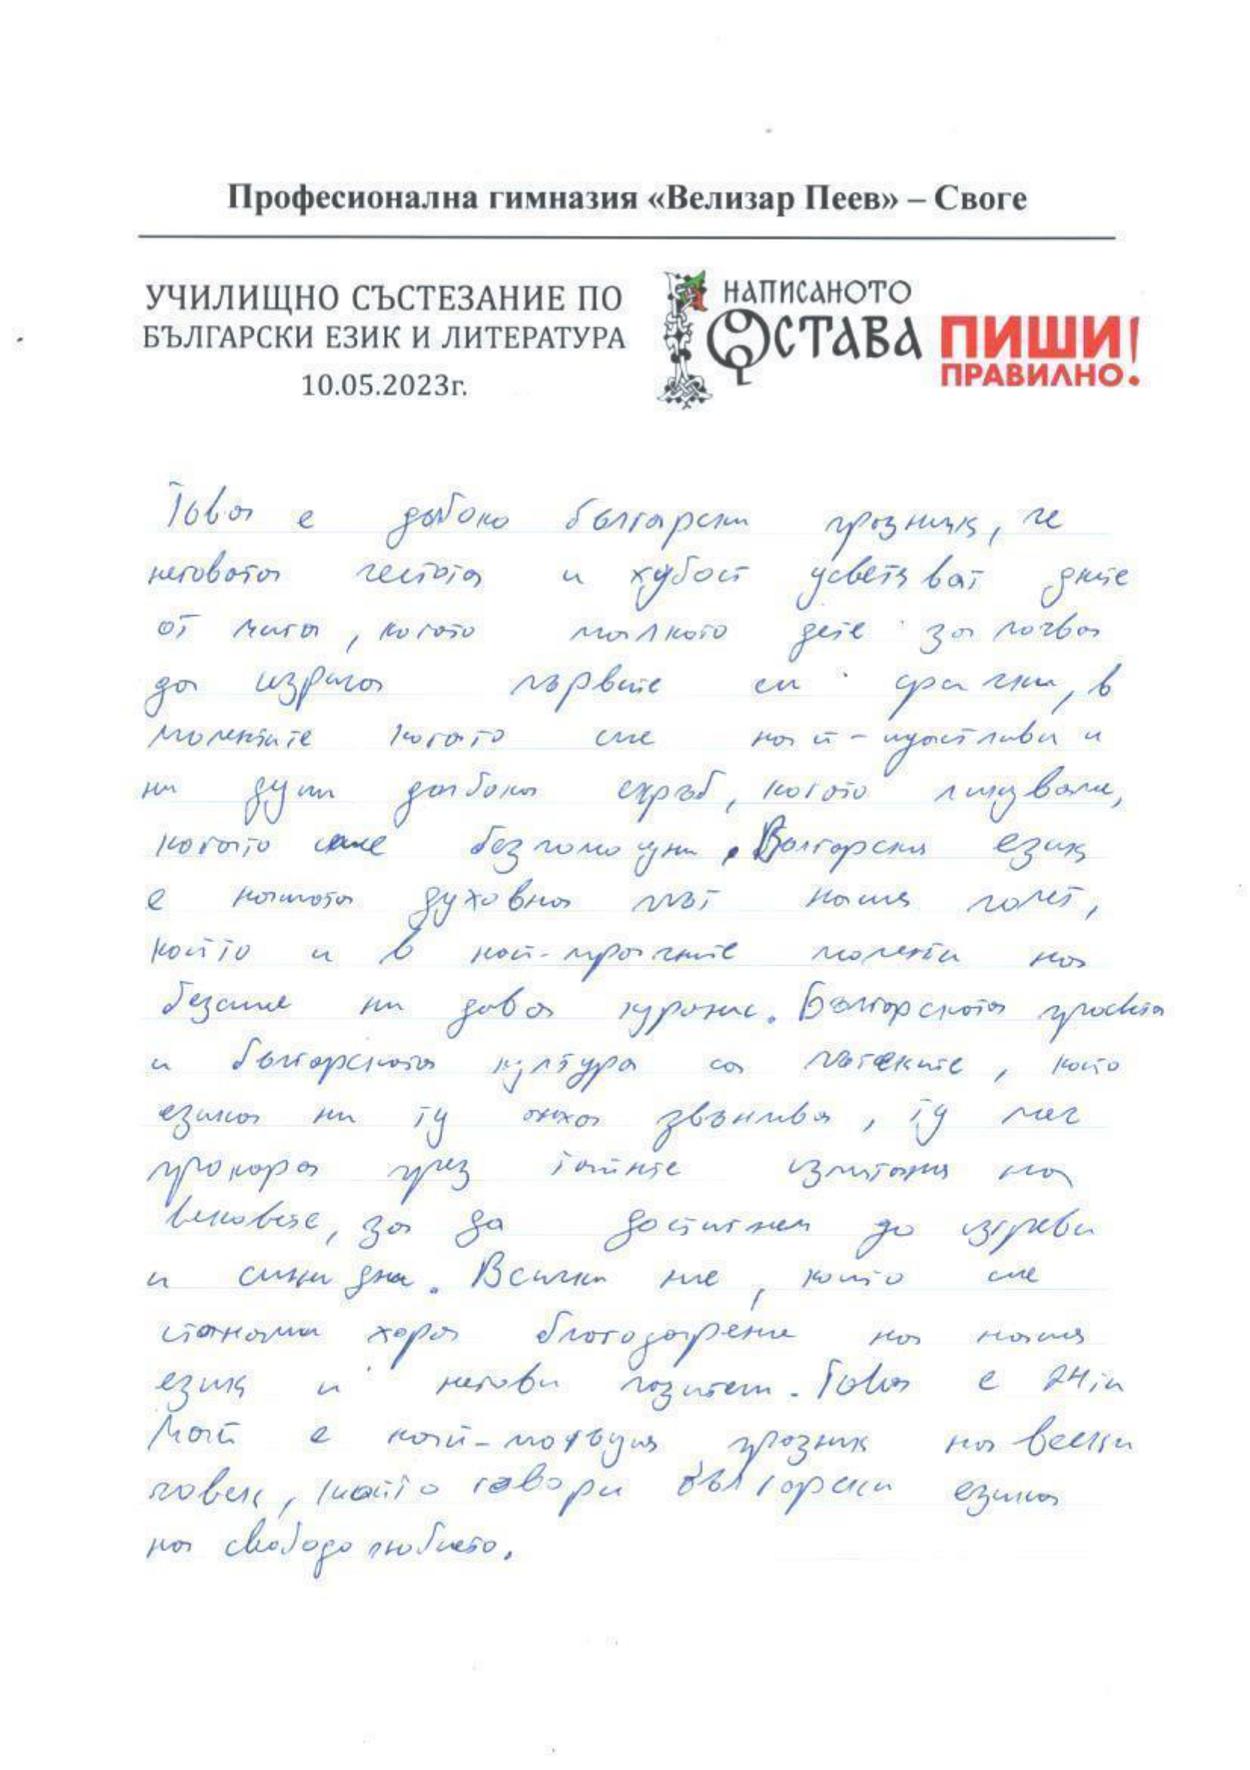 Професионална гимназия «Велизар Пеев» – Своге
УЧИЛИЩНО СЪСТЕЗАНИЕ ПО
БЪЛГАРСКИ ЕЗИК И ЛИТЕРАТУРА
10.05.2023г.
НАПИСАНОТО
ОСТАВА
ПИШИ!
ПРАВИЛНО.
Това е дълбоко български празник, че
неговата честота и хубост усветяват дните
от мига, когато малкото дете започва
да изрича първите си срички, в
моментите когато сме най-щастливи и
ни души дълбока скръб, когато ликуваме,
когато сме безпомощни, Българския език
е нашата духовна път нашия полет,
който и в най-мрачните моменти на
безсилие ни дава кураж. Българската просвета
и българската култура са пътеките, които
езика ни ту звънлива, ту меч
прокара през тайните измитания на
вековете, за да достигнем до изгреви
и сини дни. Всички ние, които сме
станали хора благодарение на нашия
език и негови позитет. Това е 24ти
Май е най-мотвъция празник на всеки
човек, който говори български езика
на свободолюбието.